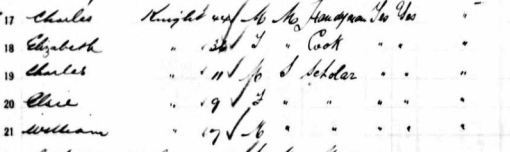 17 Charles Knight 44 M M Handyman Yes Yes "
18 Elizabeth " 36 F " Cook " " "
19 Charles " 11 M S Scholar " " "
20 Elsie " 9 F " " " " "
21 William " 7 M " " " " "